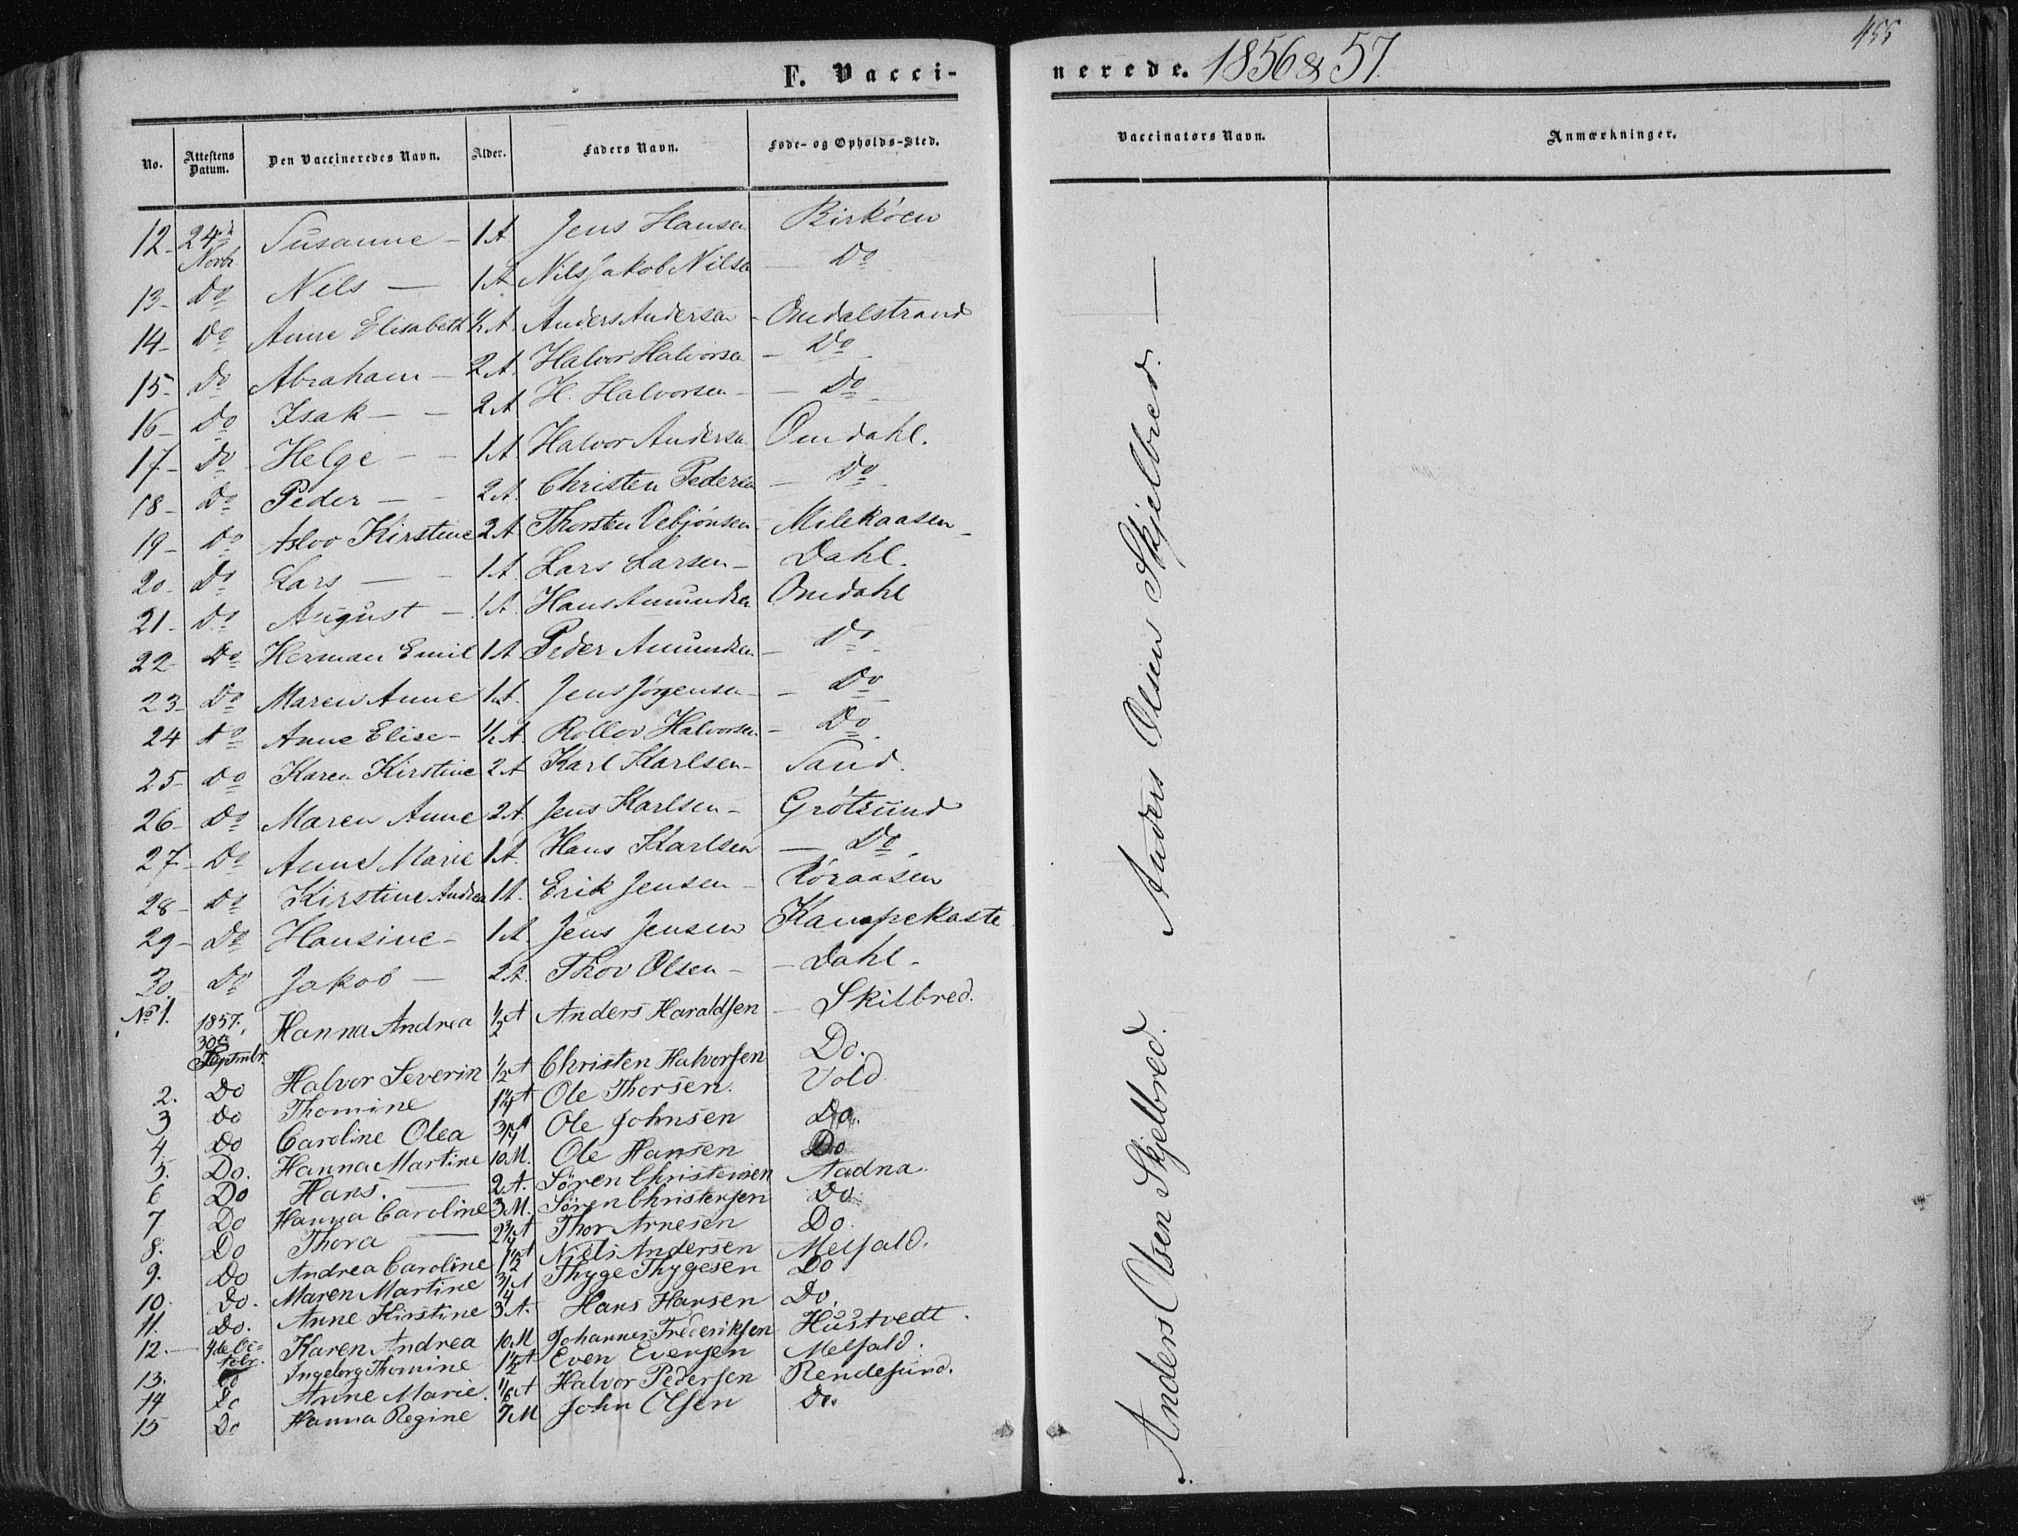 455
F. Vaccinerede. 1856 & 57.
No. Attestens Datum. Den Vaccineredes Navn. Alder. Faders Navn. Føde- og Opholds-Sted. Vaccinators Navn. Anmærkninger.
12 24de Novbr Susanne 1 A Jens Hansen Birköen
13 Do Nils 1 A Nils Jakob Nilsen Do
14 Do Anne Elisabeth ½ A Anders Andersen Omdalstrand
15 Do Abraham 2 A. Halvor Halvorsen Do
16 Do Isak 2 A H. Halvorsen Do
17 Do Helge 1 A Halvor Andersen Omdahl.
18 Do Peder 2 A. Christen Pedersen Do
19 Do Aslov Kirstine 2 A Thorsten Vebjönsen Milekaasen
20 Do Lars 1 A. Lars Larsen Dahl.
21 Do August 1 A. Hans Amundsen Omdahl
22 Do Herman Emil 1 A Peder Amundsen Do
23 Do Maren Anne 1 A. Jens Jörgensen Do
24 Do Anne Elise ½ A. Rollov Halvorsen Do
25 Do Karen Kirstine 2 A Karl Karlsen Sand.
26 Do Maren Anne 2 A. Jens Karlsen Grötsund
27 Do Anne Marie 1 A. Hans Karlsen Do
28 Do Kirstine Andrea 1 A. Erik Jensen Röraasen
29 Do Hansine 1 A. Jens Jensen Kampekaste
30 Do Jakob 2 A. Thov Olsen Dahl
No 1. 1857. 30te Septmbr. Hanna Andrea ½ A Anders Haraldsen Skilbred.
2. Do Halvor Severin ½ A Christen Halvorsen Do.
3 Do Thomine 1¼ A Ole Thorsen. Vold
4. Do Caroline Olea ¾ A Ole Johnsen Do.
5. Do. Hanna Martine 10 M. Ole Hansen Do
6 Do Hans. 2 A. Sören Christensen Aadna.
7. Do Hanna Caroline 3 M. Sören Christensen Do
8. Do Thora 2¾ A Thor Arnesen Do.
9. Do Andrea Caroline 1½ A Niels Andersen Melfald.
10. Do. Maren Martine ¾ A Thyge Thygesen Do
11. Do. Anne Kirstine 3 A. Hans Hansen Do.
12. 4de Octobr. Karen Andrea 10 M Johannes Frederiksen Hustvedt.
13. Do Ingeborg Thomine 1½ A Even Evensen Melfald.
14 Do Anne Marie. A Halvor Pedersen Rendesund.
15 Do Hanna Regine 7 M John Olsen Do.
Anders Olsen Skjelbred.
Anders Olsen Skjelbred.